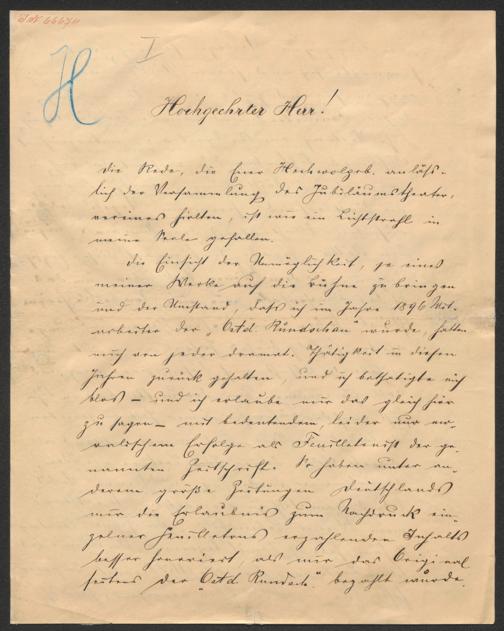 IN 66671
H
I
Hochgeehrter Herr!
die Rede, die Euer Hochwolgeb. anläss-
lich der Versammlung des Jubiläumstheater-
vereines hielten, ist wie ein Lichtstrahl in
meine Seele gefallen.
die Einsicht der Unmöglichkeit, je eines
meiner Werke auf die Bühne zu bringen
und der Umstand, dass ich im Jahre 1896 Mit-
arbeiter der „Ostd. Rundschau" wurde, hatten
mich von jeder dramat. Thätigkeit in diesen
Jahren zurück gehalten, und ich bethätigte mich
blos – und ich erlaube mir das gleich hier
zu sagen – mit bedeutendem, leider nur mo-
ralischem Erfolge als Feuilletonist der ge-
nannten Zeitschrift. So haben unter an-
derem große Zeitungen Deutschlands
mir die Erlaubnis zum Nachdruck ein-
zelner Feuilletons erzählenden Inhalts
besser honoriert, als mir das Original
seitens der „Ostd. Rundsch." bezahlt wurde.